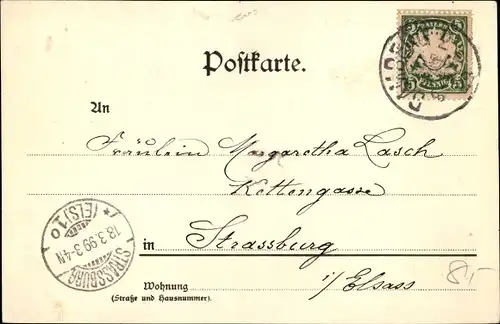 Postkarte.
BAYERN
5 PFENNIG 5
BAMBERG
An
Fräulein Margaretha Lasch
Kettengasse
in Strassburg
i/Elsass
Wohnung
(Straße und Hausnummer).
STRASSBURG
18.3.99.3-4N
*(ELS)10
84,-